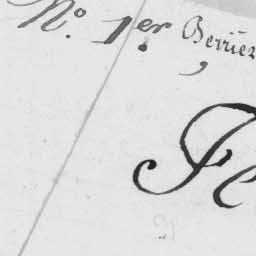 N.º 1.er Berrier
Fe